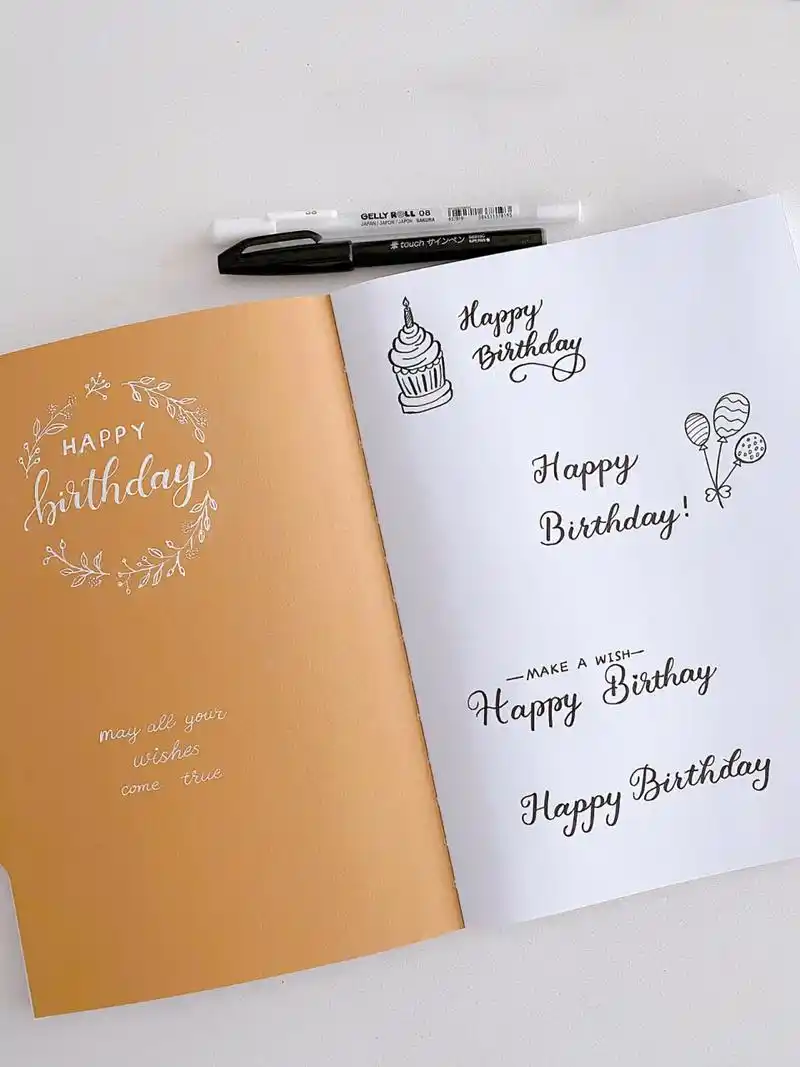 GELLY ROLL 08
JAPAN / JAPON / JAPÓN SAKURA
touch サインペン
HAPPY
birthday
may all your
wishes
come true
Happy
Birthday
Happy
Birthday!
—MAKE A WISH—
Happy Birthay
Happy Birthday